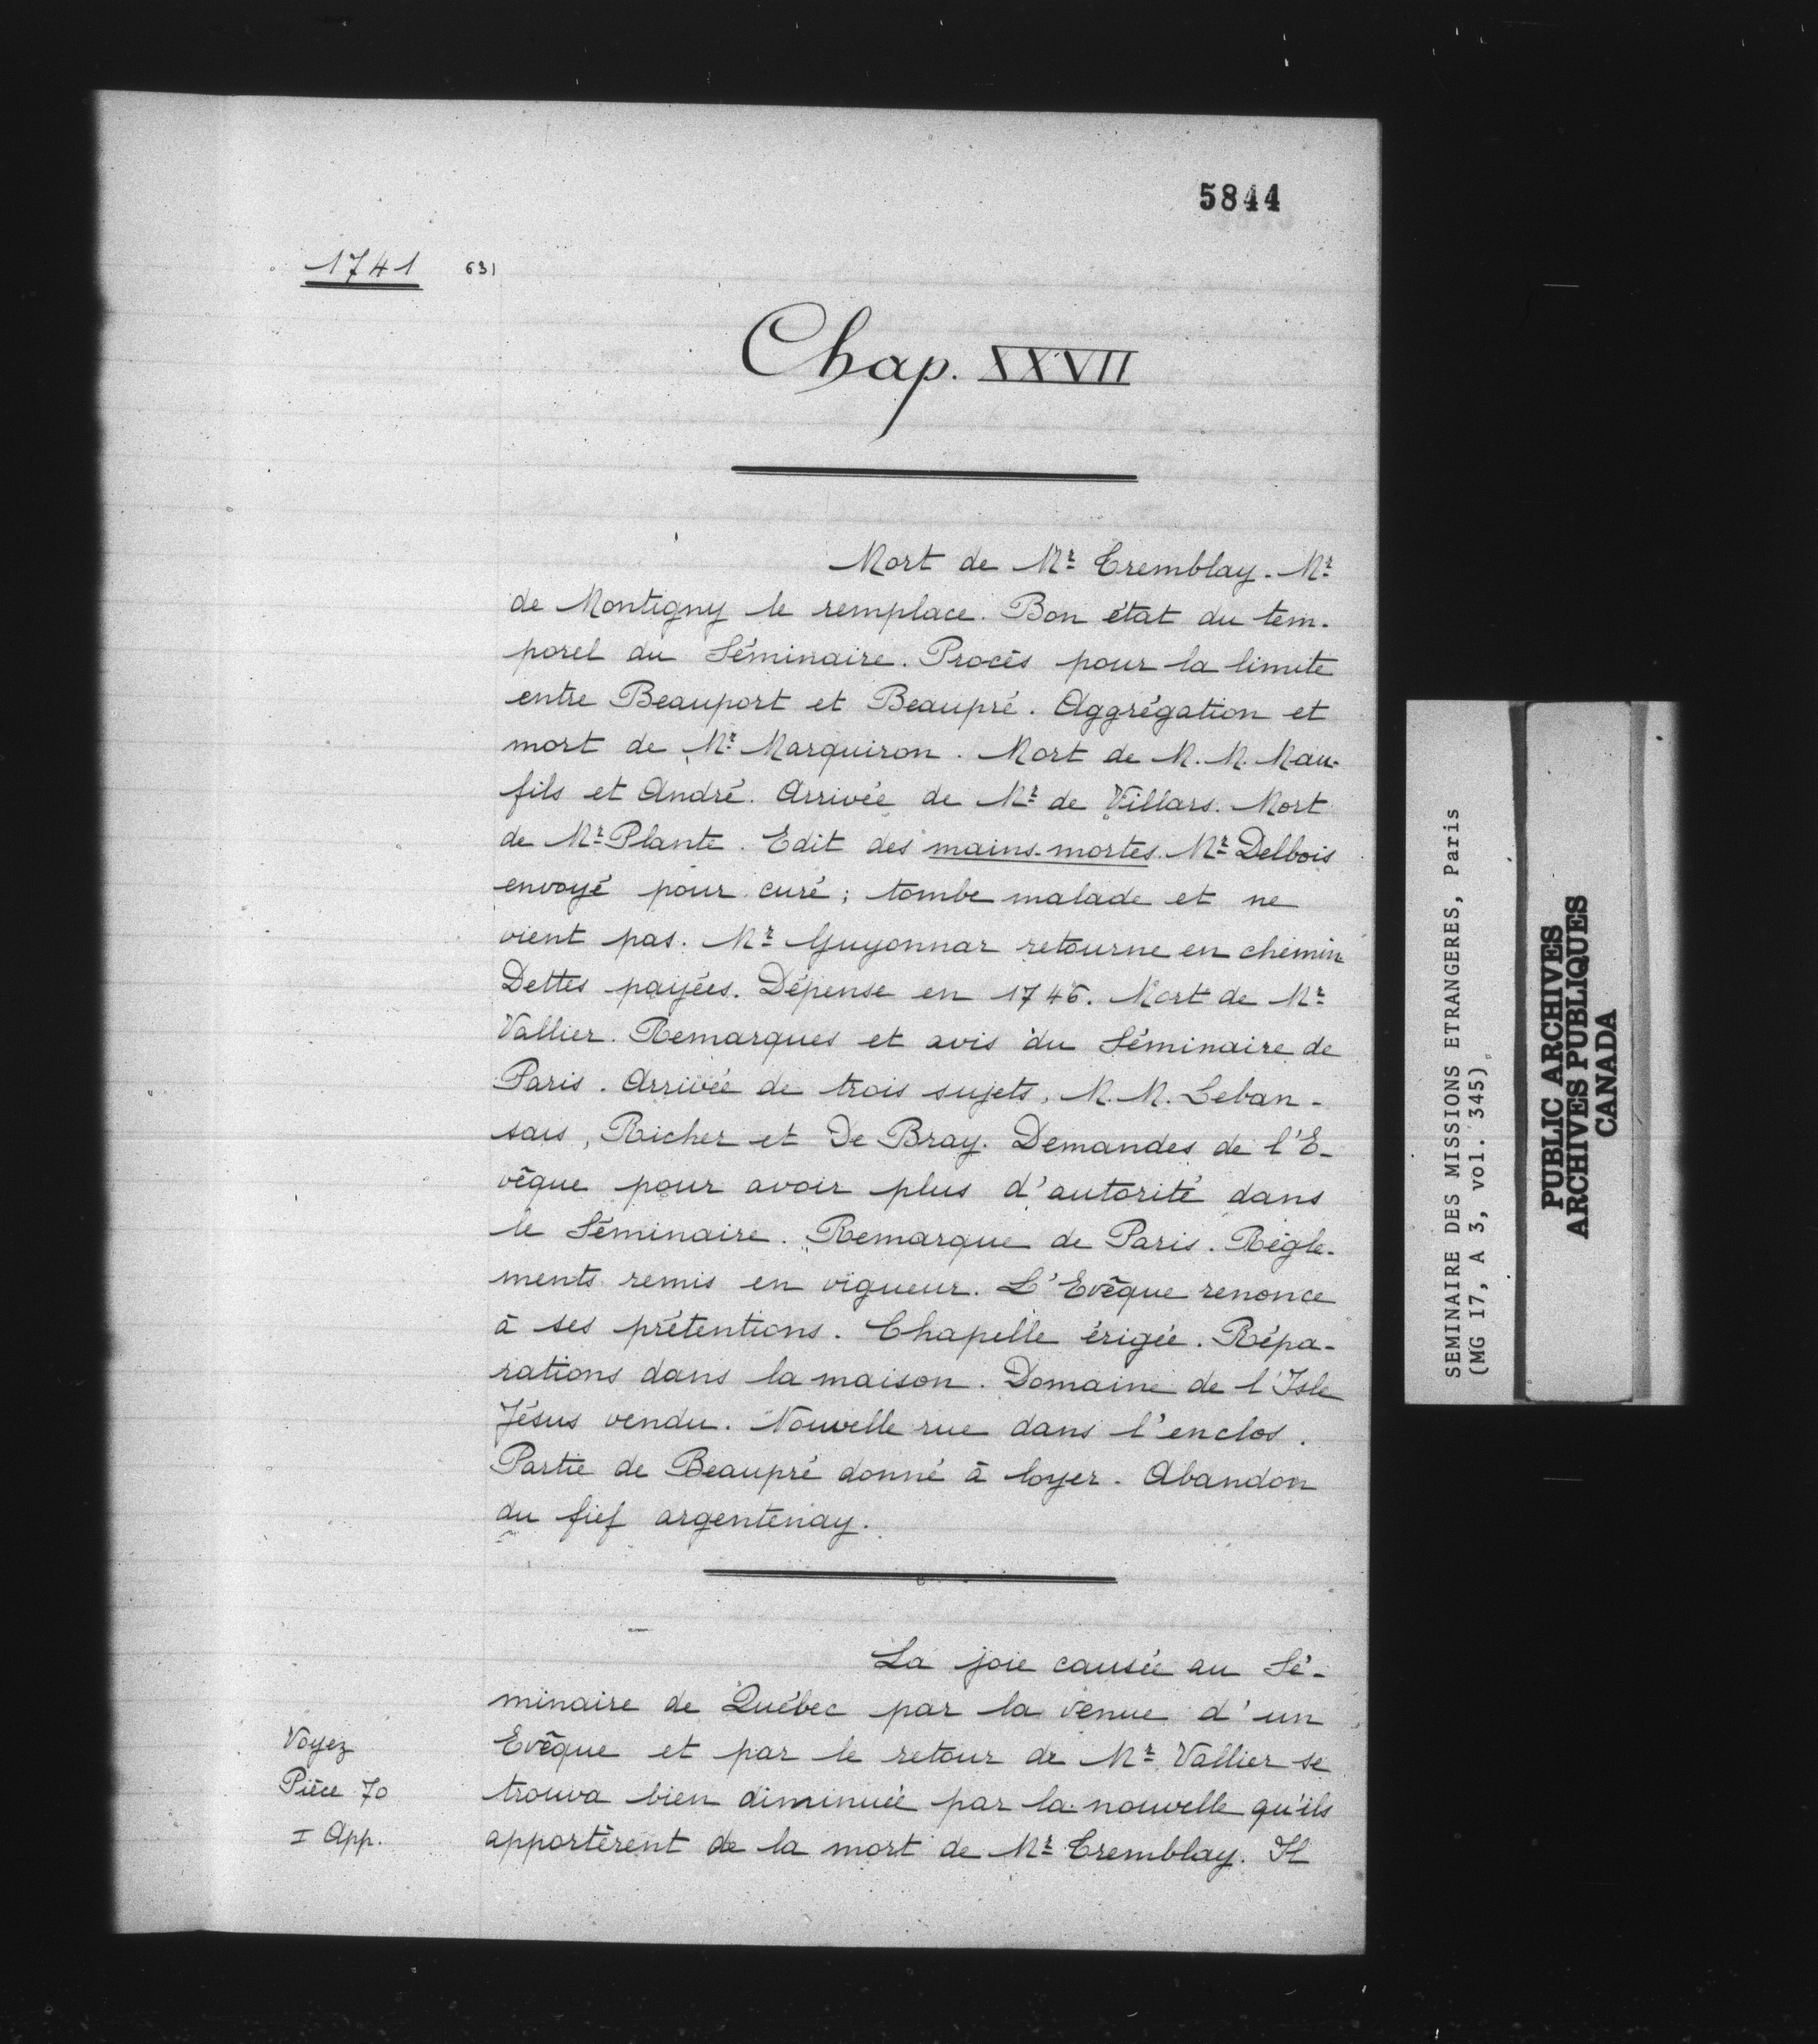 5844
1741 631
Chap. XXVII
Mort de Mr Tremblay. Mr
de Montigny le remplace. Bon état du tem-
porel du Séminaire. Procès pour la limite
entre Beauport et Beaupré. Aggrégation et
mort de Mr Marquiron. Mort de M. M. Mau-
fils et André. Arrivée de Mr de Villars. Mort
de Mr Plante. Edit des mains-mortes. Mr Delbois
envoyé pour curé; tombe malade et ne
vient pas. Mr Guyonnar retourne en chemin
Dettes payées. Dépense en 1746. Mort de Mr
Vallier. Remarques et avis du Séminaire de
Paris. Arrivée de trois sujets, M. M. Leban-
sais, Richer et De Bray. Demandes de l'E-
vêque pour avoir plus d'autorité dans
le Séminaire. Remarque de Paris. Règle-
ments remis en vigueur. L'Evêque renonce
à ses prétentions. Chapelle érigée. Répa-
rations dans la maison. Domaine de l'Isle
Jésus vendu. Nouvelle rue dans l'enclos.
Partie de Beaupré donné à loyer. Abandon
du fief argentenay.
La joie causée au Sé-
minaire de Québec par la venue d'un
Evêque et par le retour de Mr Vallier se
trouva bien diminuée par la nouvelle qu'ils
apportèrent de la mort de Mr Tremblay. Il
Voyez
Pièce 70
I App.
SEMINAIRE DES MISSIONS ETRANGERES, Paris
(MG 17, A 3, vol. 345).
PUBLIC ARCHIVES
ARCHIVES PUBLIQUES
CANADA